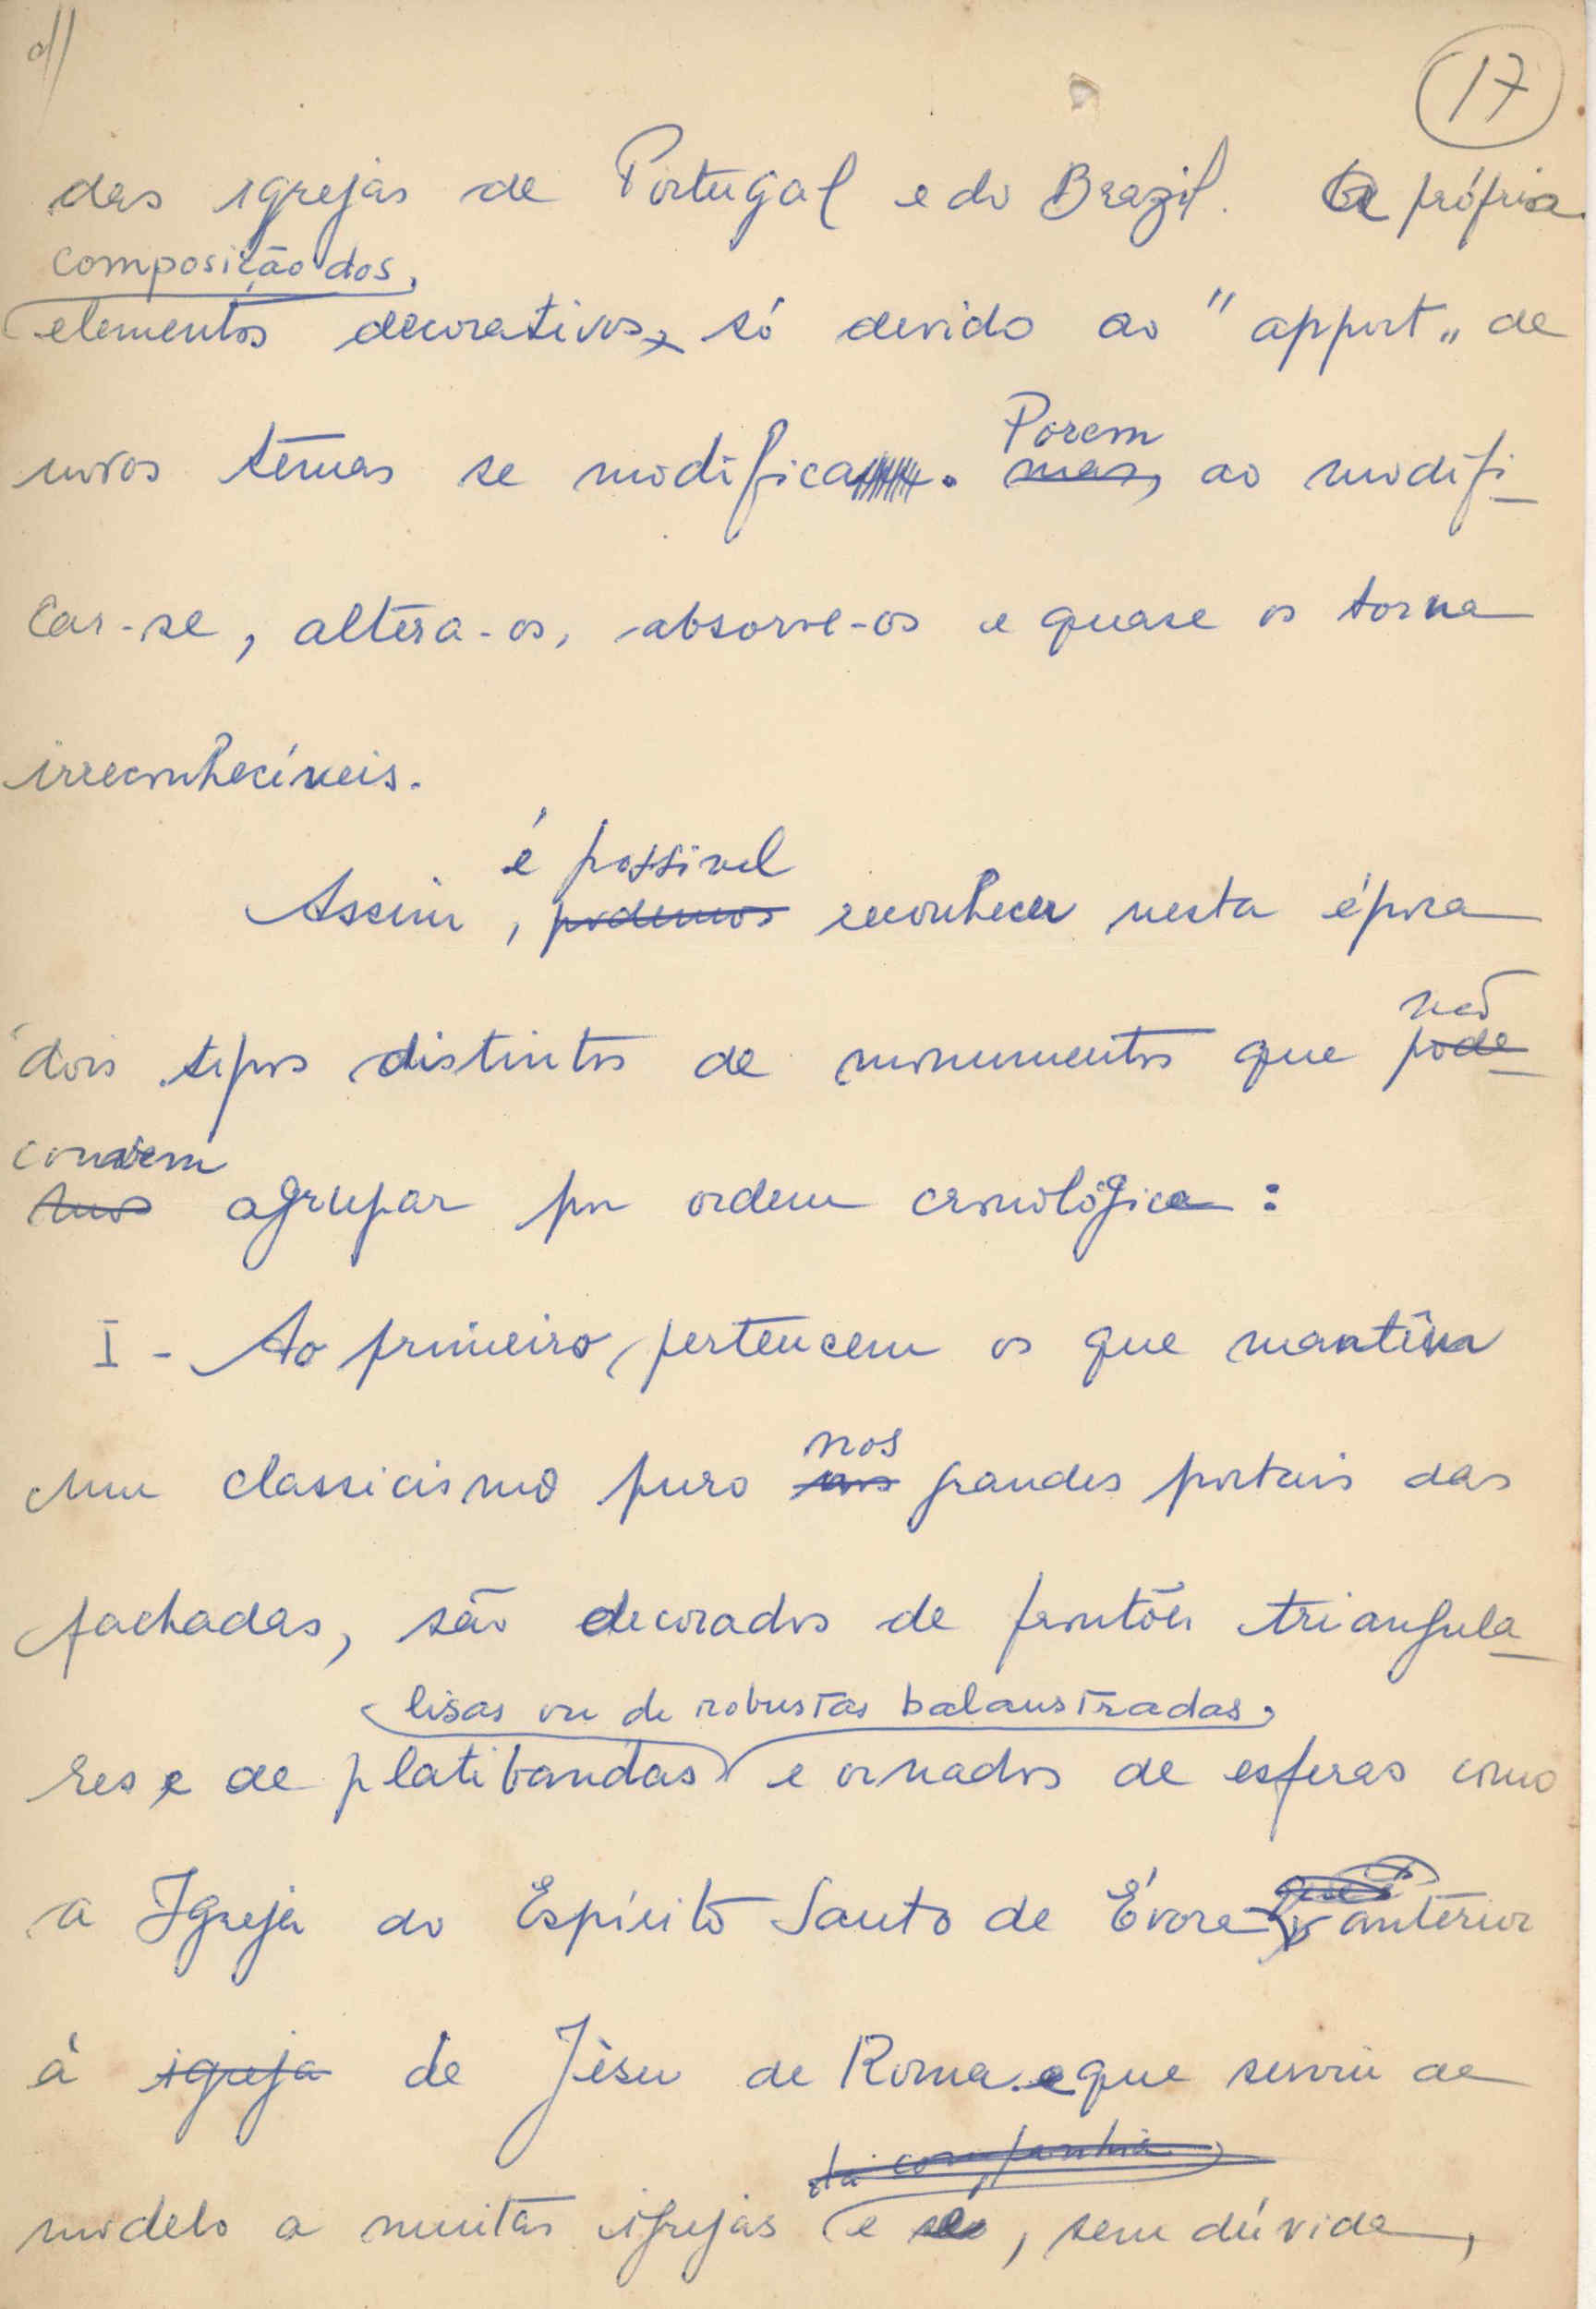 17
das igrejas de Portugal e do Brazil. A própria
composição dos
elementos decorativos, só devido ao "apport" de
novos temas se modifica.
Porem
mas, ao modifi-
car-se, altera-os, absorve-os e quase os torna
irreconhecíveis.
é possivel
Assim, podemos reconhecer nesta época
não
dois tipos distintos de monumentos que pode-
convem
mos agrupar por ordem cronológica:
I - Ao primeiro, pertencem os que mantêm
um classicismo puro
nos
nos grandes portais das
fachadas, são decorados de frontões triangula-
lisas ou de robustas balaustradas,
res e de platibandas e ornados de esferas como
a Igreja do Espírito Santo de Évora anterior
à igreja de Jèsu de Roma e que serviu de
da companhia
modelo a muitas igrejas e, sem dúvida,